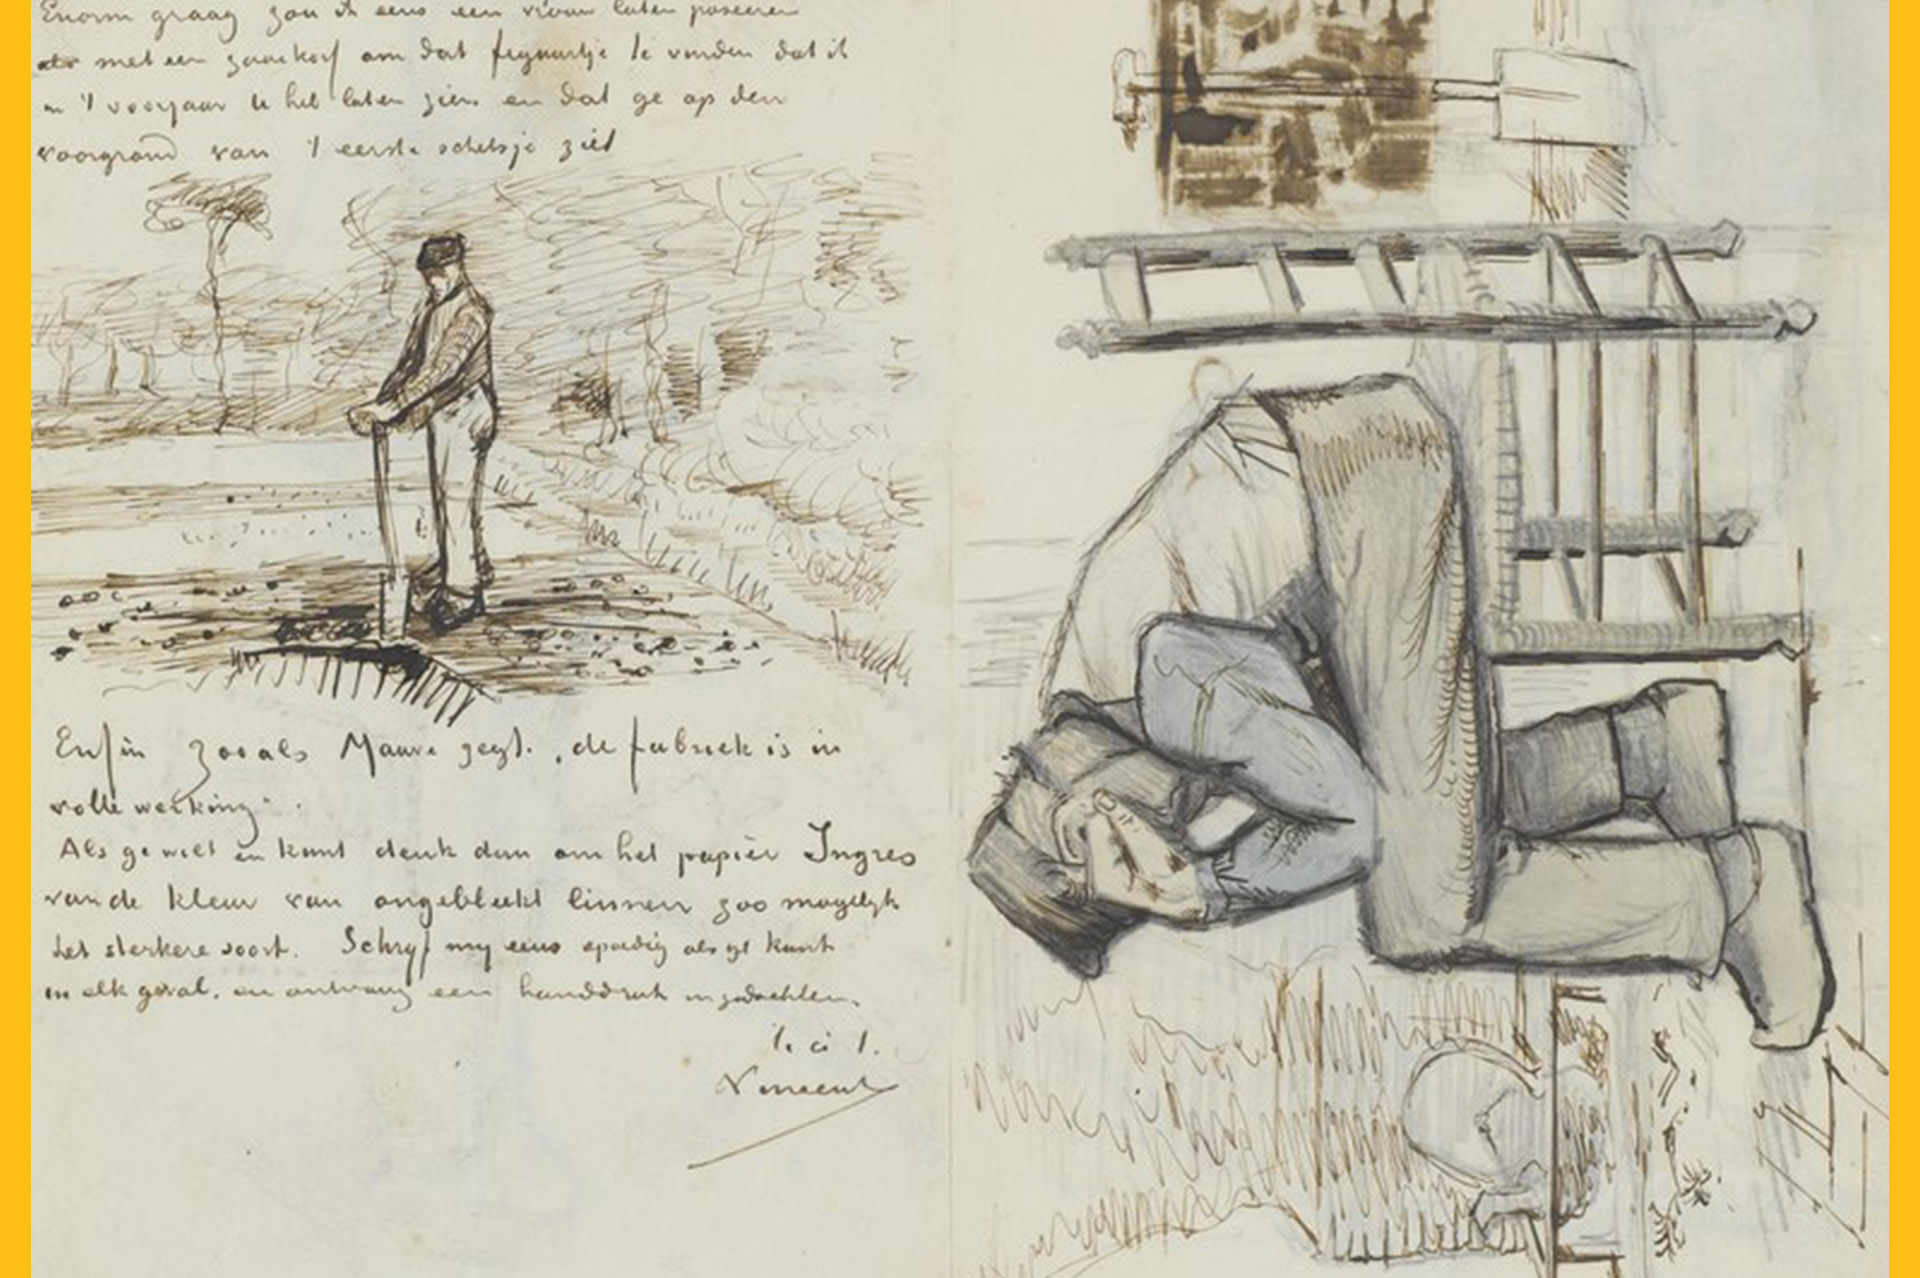 Enorm graag zou ik eens een vrouw laten poseeren
met een zaaikorf om dat figuurtje te vinden dat ik
in 't voorjaar U heb laten zien en dat ge op den
voorgrond van 't eerste schetsje ziet
Enfin zooals Mauve zegt, de fabriek is in
volle werking.
Als ge wilt en kunt denk dan om het papier Ingres
van de kleur van ongebleekt linnen zoo mogelyk
het sterkere soort. Schryf my eens spoedig als ge kunt
in elk geval, en ontvang een handdruk in gedachten.
t. à t.
Vincent